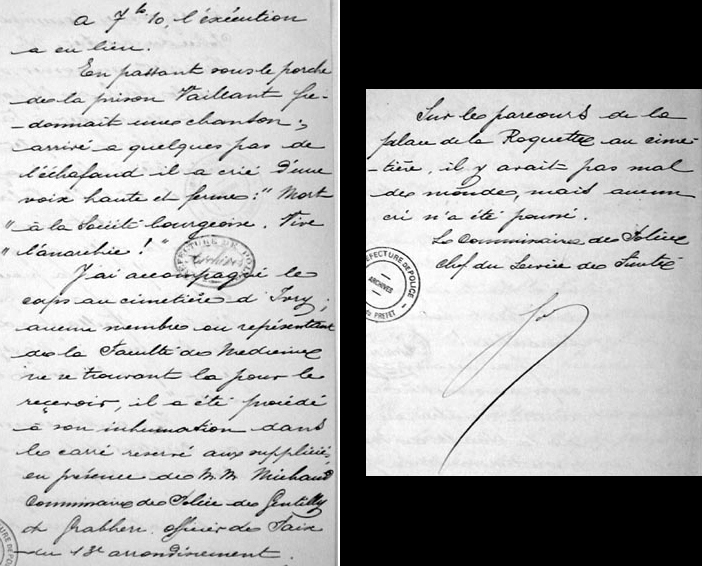 A 7h 10, l'exécution
a eu lieu.
En passant sous le porche
de la prison Vaillant fre-
-donnait une chanson ;
arrivé a quelques pas de
l'échafaud il a crié d'une
voix haute et ferme : " Mort
" à la Société bourgeoise. Vive
" l'anarchie ! "
PREFECTURE DE POLICE
Archives
J'ai accompagné le
corps au cimetière d'Ivry ;
aucun membre ou représentant
de la Faculté de Medecine
ne se trouvant là pour le
recevoir, il a été procédé
à son inhumation dans
le carré réservé aux suppliciés,
en présence de M.M. Michaud
Commissaire de Police de Gentilly
et officier de Paix
du 13e arrondissement.
Sur le parcours de la
place de la Roquette au cime-
-tière, il y avait pas mal
de monde, mais aucun
cri n'a été poussé.
Le Commissaire de Police
Chef du Service de Sûreté
PREFECTURE DE POLICE
ARCHIVES
du PREFET